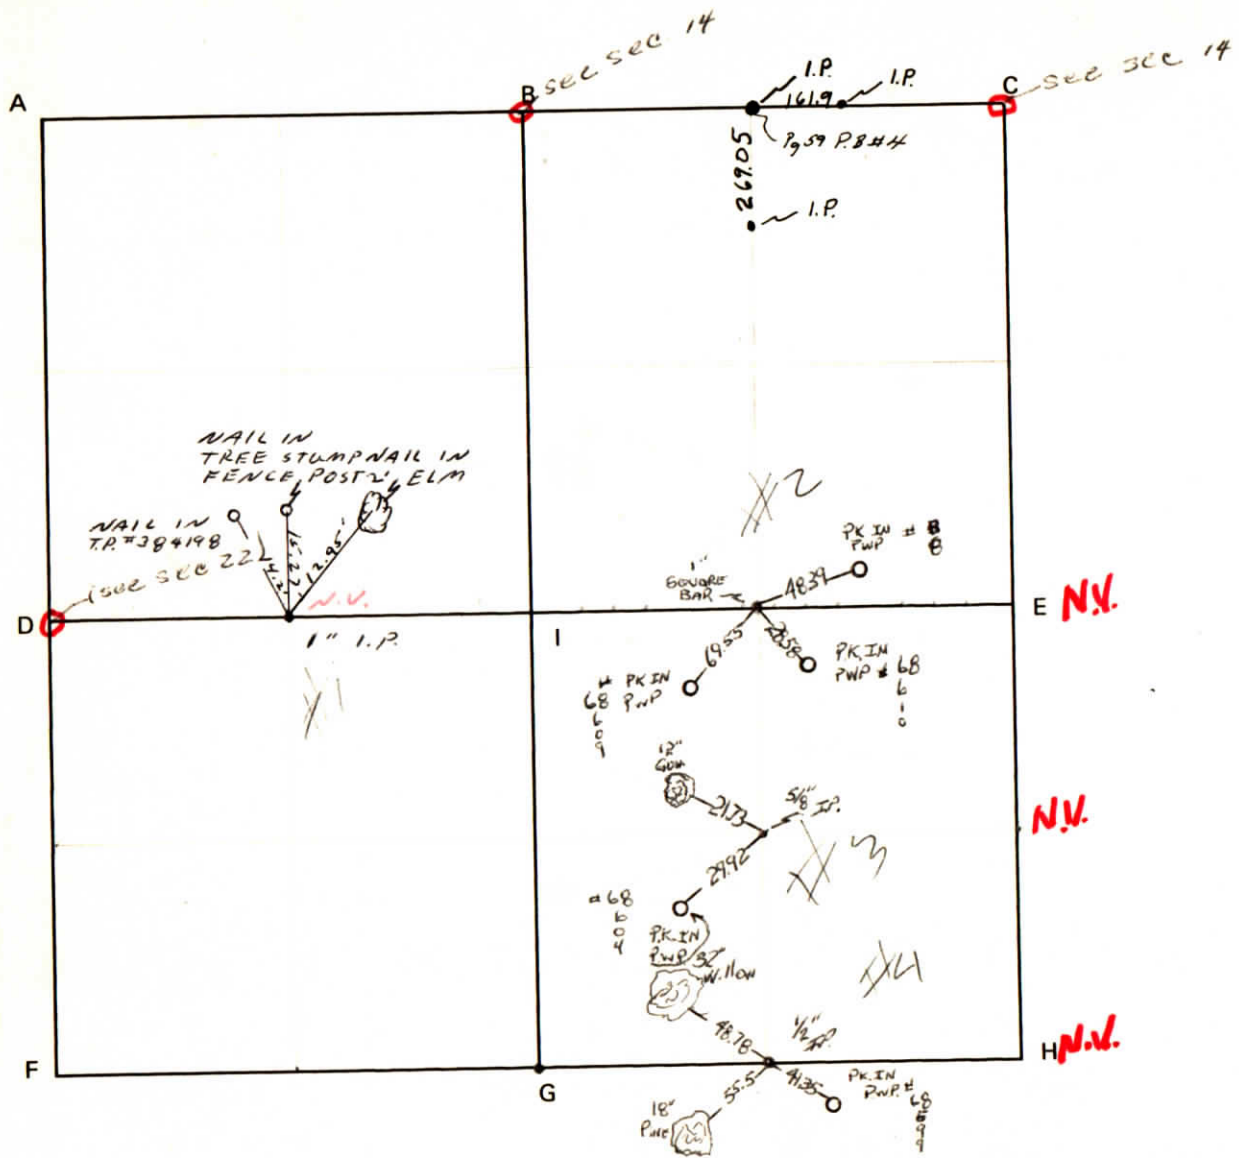 see sec 14
see sec 14
A
B
C
I.P.
I.P.
161.9
Pg 59 P.B #4
269.05
I.P.
NAIL IN
TREE STUMP
FENCE POST
NAIL IN
2' ELM
NAIL IN
T.P. #384198
see sec 22
12.95'
N.V.
D
1" I.P.
#1
#2
PK IN # 8
PWP 8
1"
SQUARE
BAR
48.39
E N.V.
I
69.55
28.58
P.K. IN
PWP # 68
6
1
0
# PK IN
68 PWP
6
0
9
12"
GUM
21.73
5/8"
I.P.
N.V.
29.92
#3
#68
6
0
4
P.K. IN
P.W.P
32"
Willow
#4
48.78
1/2"
I.P.
H N.V.
F
G
55.5
41.35
PK. IN
P.W.P. #
68
9
9
18"
Pine